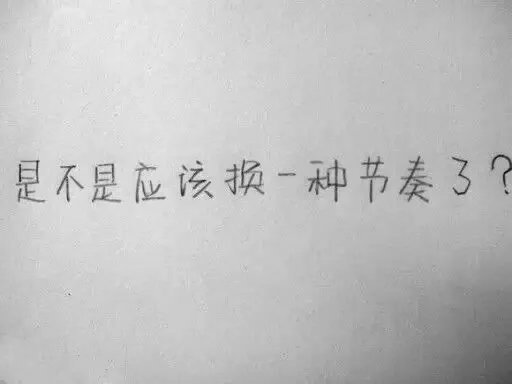 是不是应该换一种节奏了?